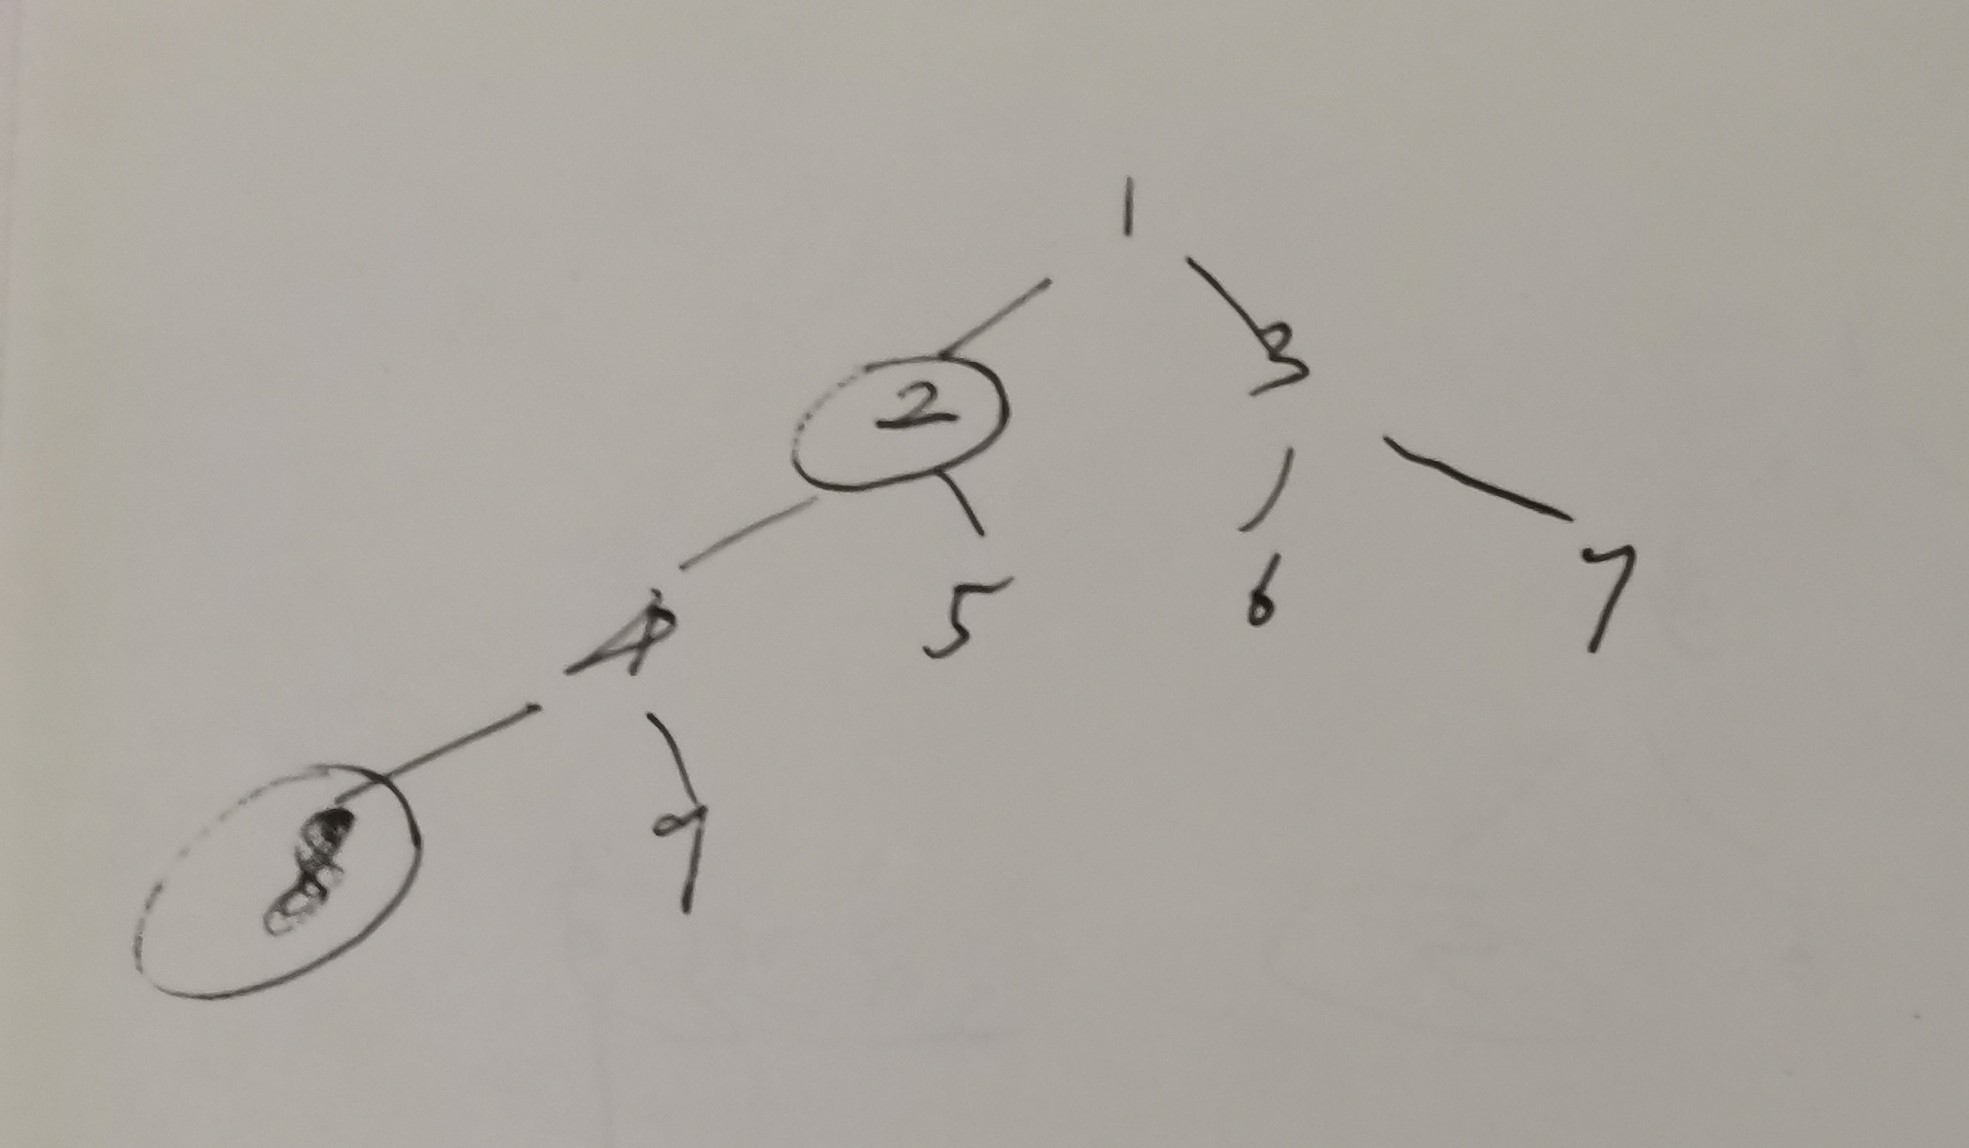 1
2 3
4 5 6 7
8 9